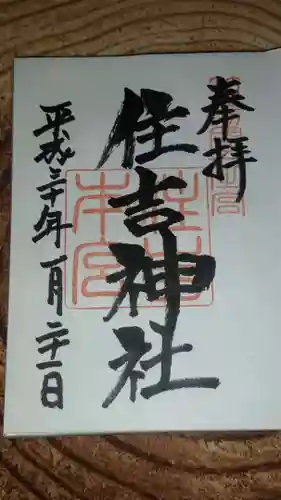 奉拝
住吉神社
平成三十年一月二十一日